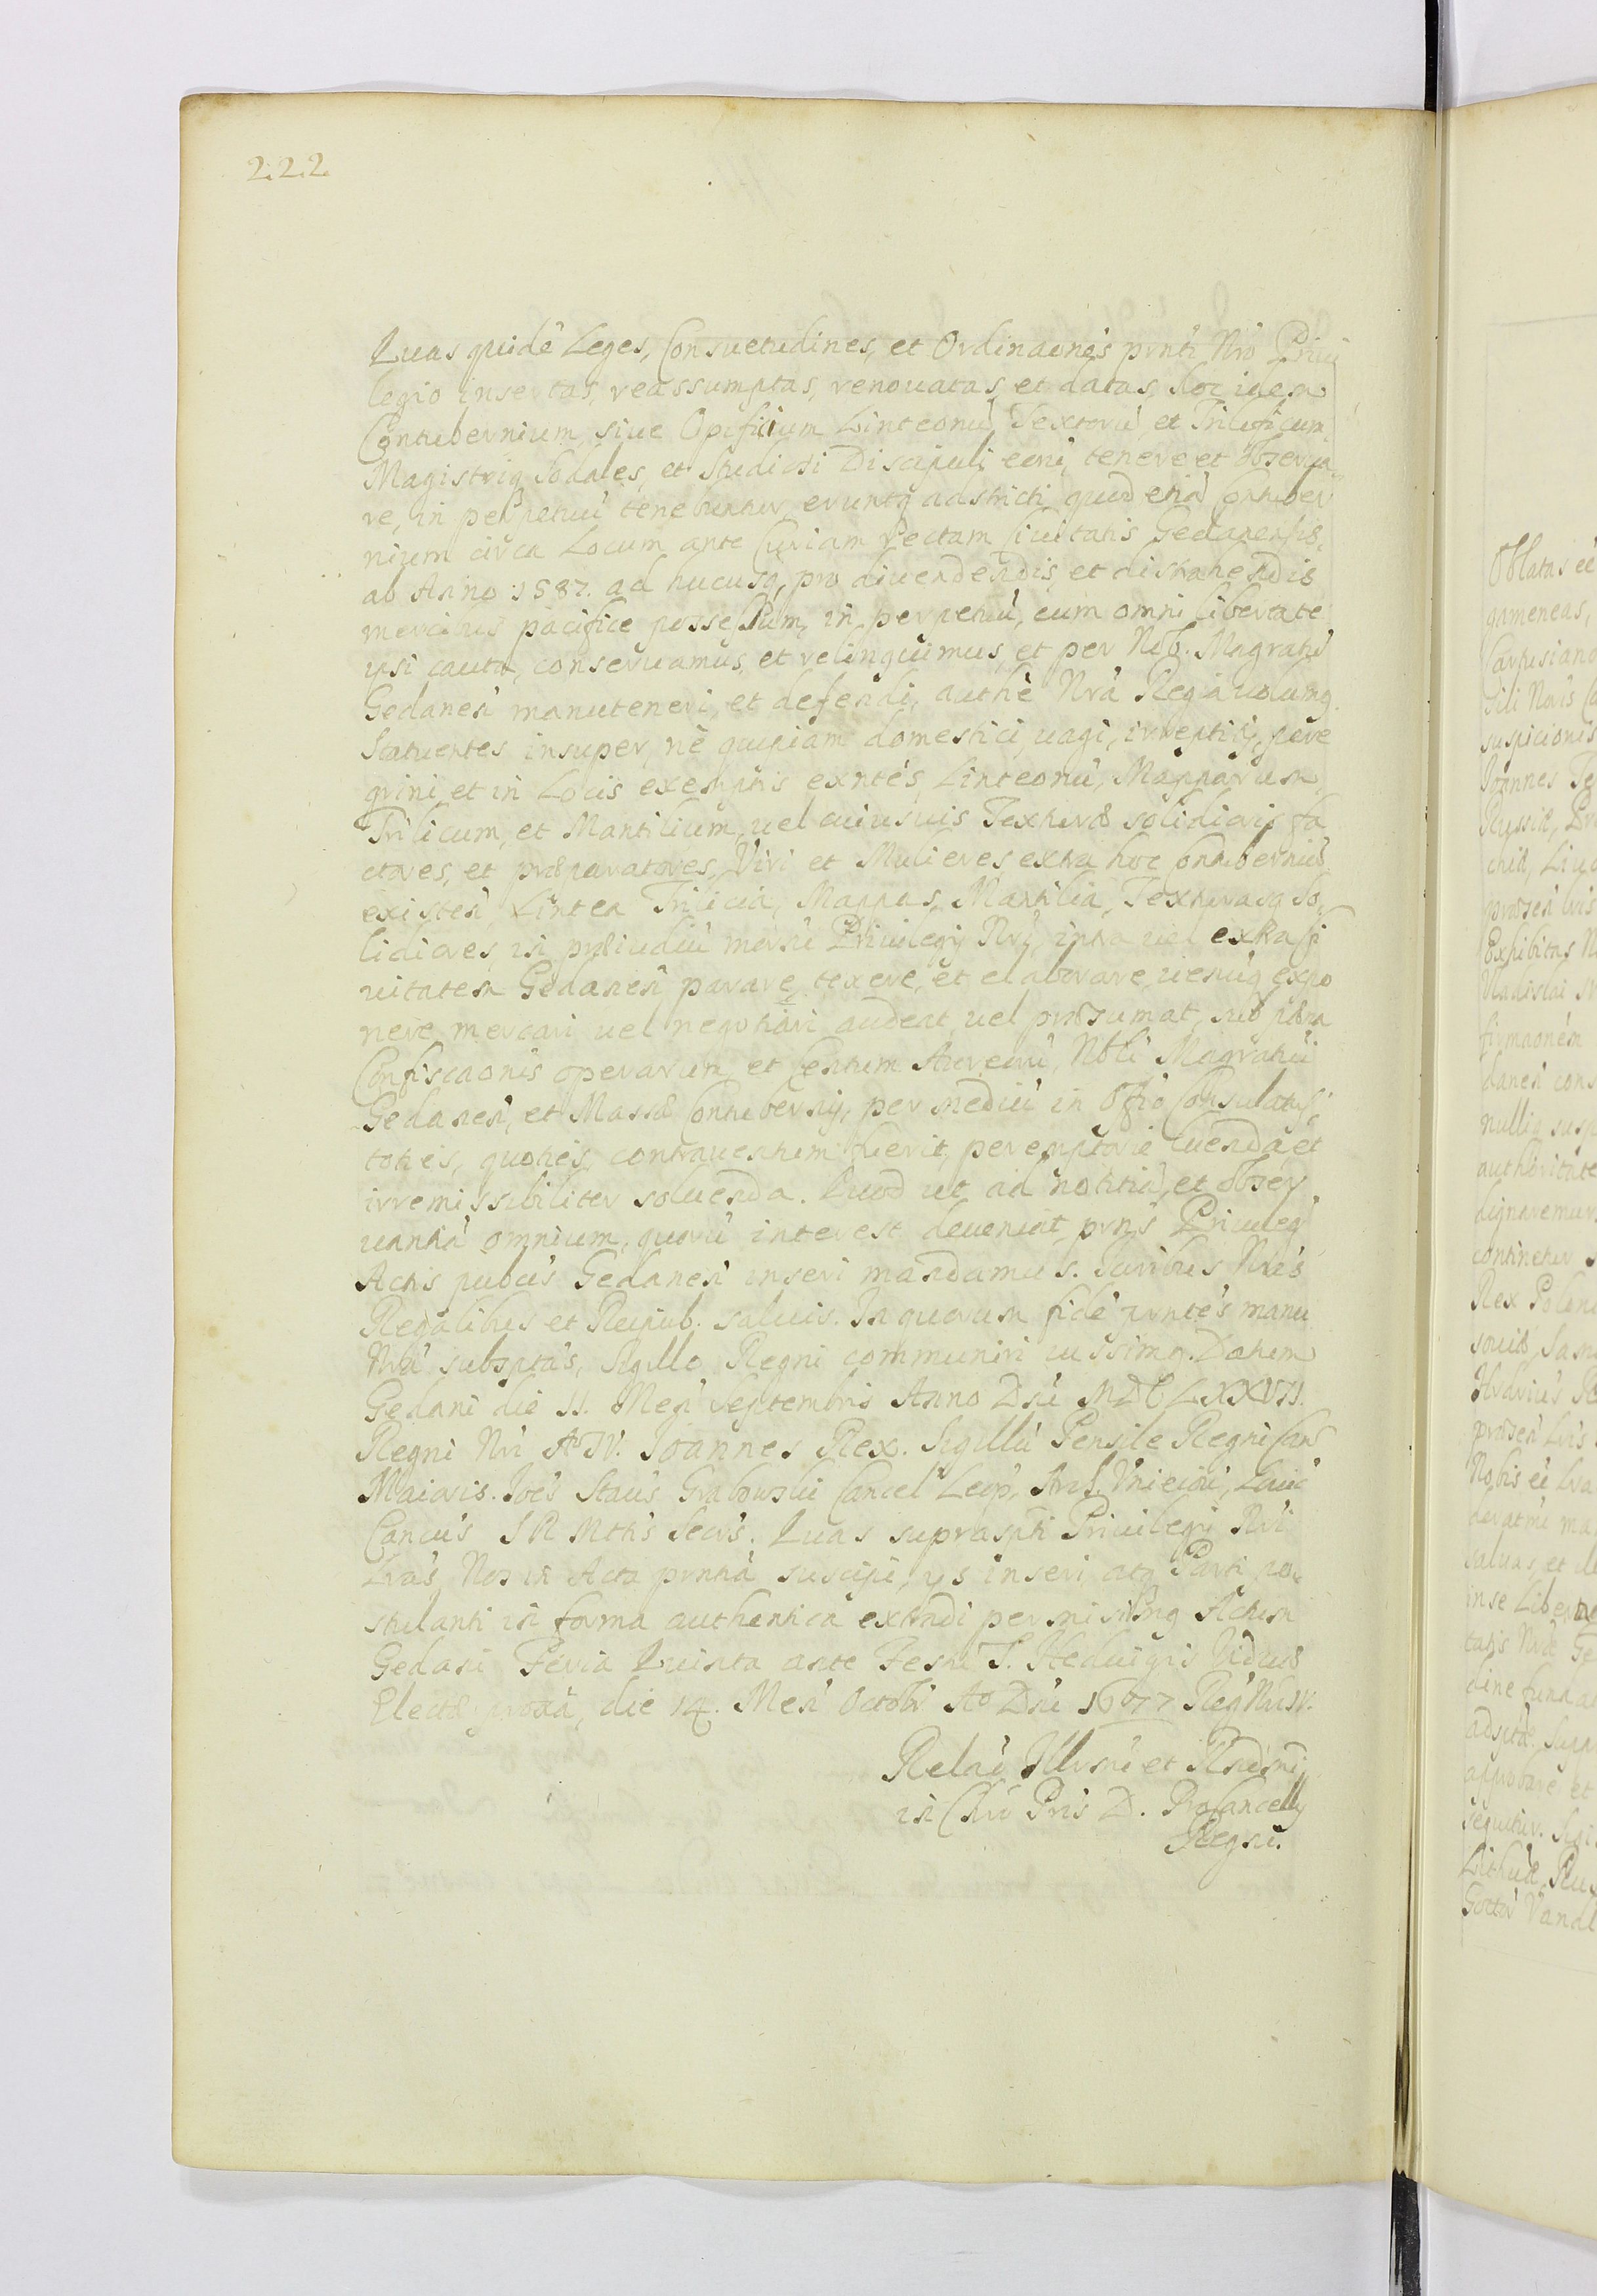 222
Quas quidẽ Leges, Consuetudines, et Ordinaones prnti Nro Priui
legio insertas, reassumptas, renouatas, et datas, hoc idem
Contubernium, siue Opificium Linteonũ, Textorũ, et Trilificum,
Magistriq Sodales, et Studiosi Discipuli eorũ, tenere et obserua
re, in perpetuũ tenebuntur, eruntq adstricti, quod etiã Contuber
nium circa Locum ante Curiam Rectam Ciuitatis Gedanensis,
ab Anno 1587. ad hucusq, pro diuendendis, et distrahendis
mercibus pacifice possessum, in perpetuũ, cum omni libertate
ipsi cauta, conseruamus, et relinquimus, et per Nob. Magratũ
Gedaneñ manuteneri, et defendi, authẽ Nrã Regia uolumq.
Statuentes insuper, ne quipiam domestici, uagi, irreptitij, pere
grini, et in Locis exemptis exñtes, Linteonũ, Mapparum,
Trilicum, et Mantilium, uel cuiusuis Texturæ solidioris fa
ctores, et præparatores, Viri et Mulieres extra hoc Contuberniũ
existeñ, Lintea Trilicia, Mappas, Mantilia, Texturasq so
lidiores, in præiudiũ mersũ Priuilegij Nri, intra uel extra Ci
uitatem Gedaneñ parare, texere, et elaborare, uenuiq expo
nere, mercari uel negotiari audeat, uel præsumat, sub pæna
Confiscaonis operarum, et Centum Aureorũ, Nbli Magratui
Gedaneñ, et Massæ Contubernij, per mediũ in Offio Consulatus,
toties, quoties contrauentum fuerit, peremptorie luenda et
irremissibiliter soluenda. Quod ut ad notitiã, et obser
uantiã omnium, quorũ interest deueniat, prns Priuileg
Actis publcis Gedaneñ inseri mandamus. Juribus Nris
Regalibus et Reipub. saluis. In quorum fidẽ prntes manu
Nrã subsptas, Sigillo Regni communiri iussimq. Datum
Gedani die 11. Meñ Septembris Anno Dni MDCLXXVII.
Regni Nri Ao IV. Joannes Rex. Sigillũ Pensile Regni Canc
Maioris. Joẽs Staus Grabowski Cancel Leop,
Canc̃us S R Mttis Secrs. Quas suprascpti Priuilegij Nri
Lrãs, Nos in Acta prntia suscipi, ijs inseri atq Parti po
stulanti in forma authentica extradi permisimq Actum
Gedani Feria Quinta ante Festũ S. Heduigis Viduæ
Electæ proxa, die 14. Meñ Octobr Ao Dni 1677 Reg Nri IV.
Relaõ Illvsmi et Rñdsmi
in Chrõ Pris D. Procancellij
Regni.
Oblatas
gameneas,
Cartusiano
suspicionis
Joannes
Russiæ,
Exhibitas
Vladislai
firmaonem
daneñ cons
nulliq susp
authoritate
dignaremur
continetur
Rex Poloni
Nobis
saluas, et
inse
approbare et
sequitur.
Lithuæ, Rus
Gottor Vandl